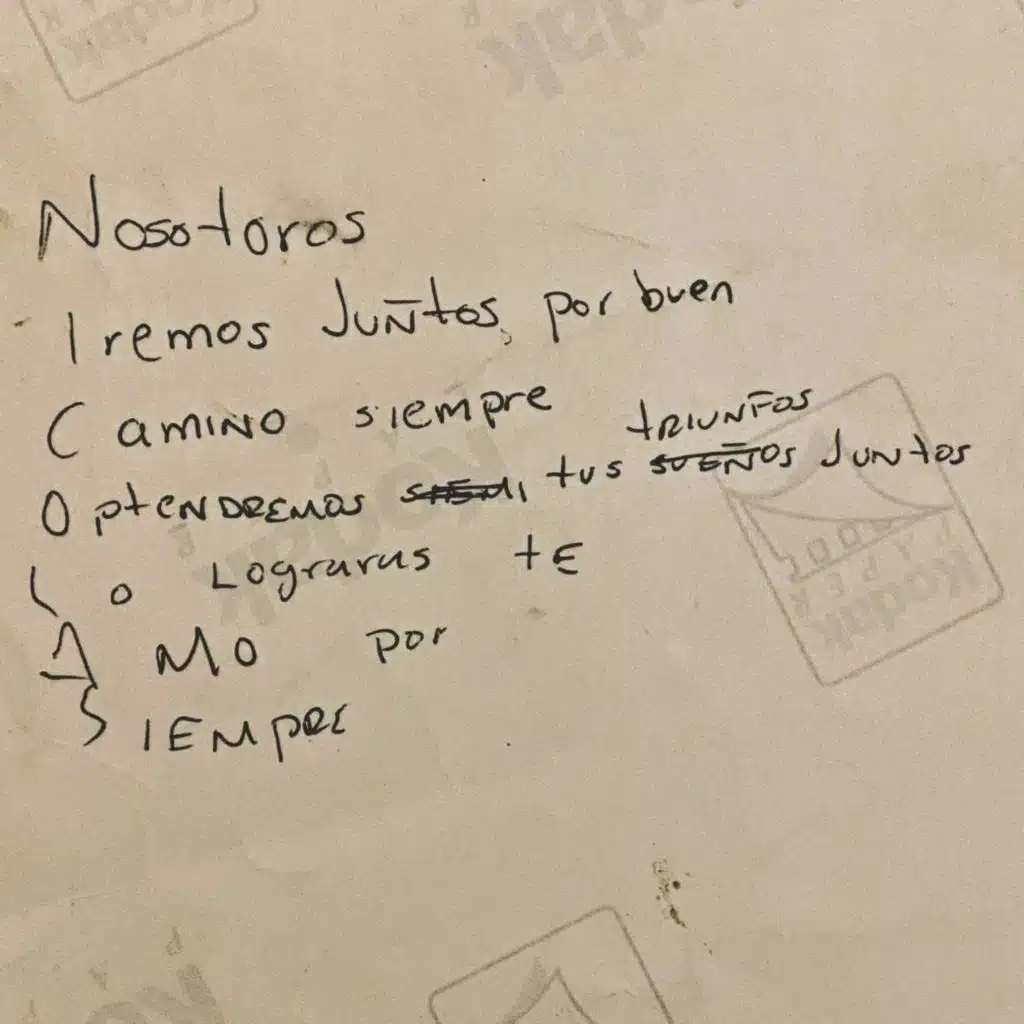 Nosotoros
Iremos Juñtos, por buen
Camino siempre
triunfos
Optendremos tus sueños Juntos
Lo Lograras te
Amo por
Siempre
Kodak
Kodak
Kodak
Kodak
Kodak